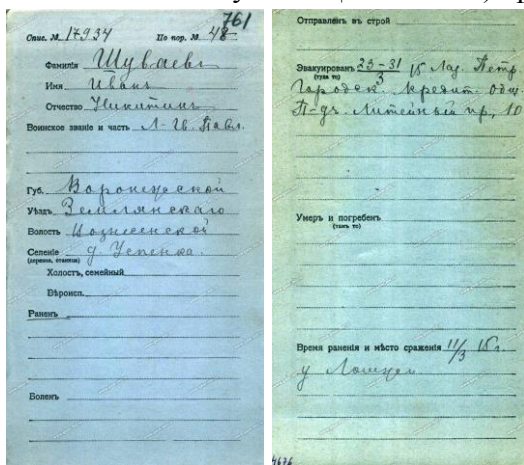 761
Спис. № 17934 По пор. № 48
Фамилія Шуваевъ
Имя Иванъ
Отчество Никитинъ
Воинское званіе и часть Л-Гв. Павл.
Губ. Воронежской
Уѣздъ Землянскаго
Волость
Селеніе д. Успенка.
(деревня, станица)
Холостъ, семейный
Вѣроисп.
Раненъ
Боленъ
Отправленъ въ строй
Эвакуированъ 23-31/3 15 Лаз. Петр.
(туда то)
Городск. Кредит. Общ.
П-дъ. Литейный пр, 10
Умеръ и погребенъ
(тамъ то)
Время раненія и мѣсто сраженія 11/3 15 г
у
4676